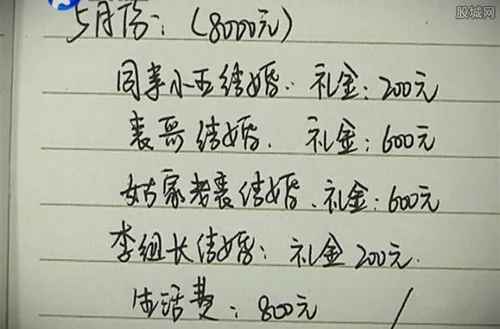 股城网
5月份：(8000元)
同事小王结婚. 礼金：200元
表哥结婚. 礼金：600元
姑家老表结婚. 礼金：600元
李组长结婚：礼金200元.
生活费：800元